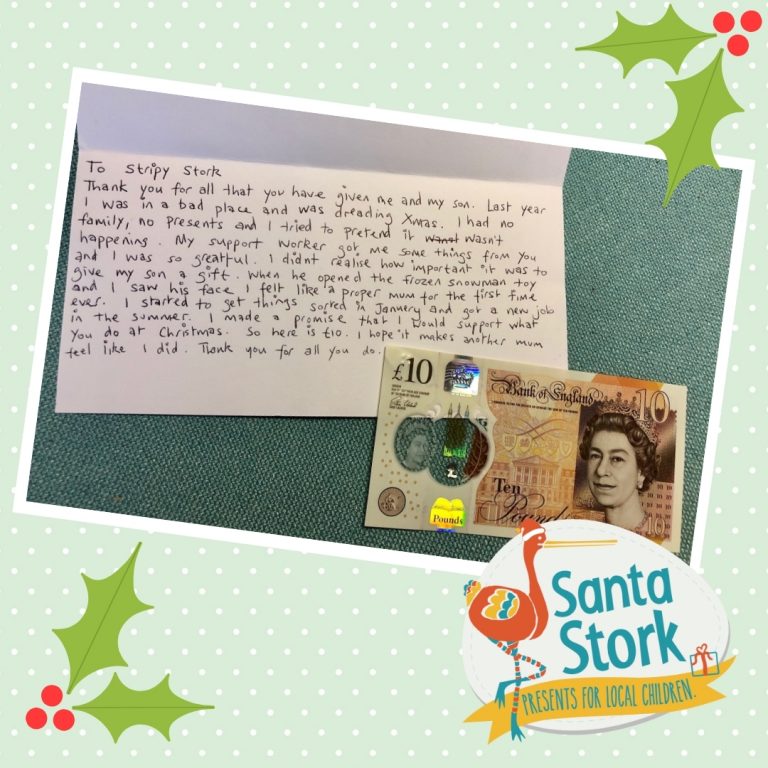 To Stripy Stork
Thank you for all that you have given me and my son. Last year
I was in a bad place and was dreading Xmas. I had no
family, no presents and I tried to pretend it wasnt wasn't
happening. My support worker got me some things from you
and I was so greatful. I didnt realise how important it was to
give my son a gift. When he opened the frozen snowman toy
and I saw his face I felt like a proper mum for the first time
ever. I started to get things sorted in Januery and got a new job
in the summer. I made a promise that I would support what
you do at Christmas. So here is £10. I hope it makes another mum
feel like I did. Thank you for all you do.
£10
Bank of England
10
Ten
Pounds
Pounds
10
Santa
Stork
PRESENTS FOR LOCAL CHILDREN.